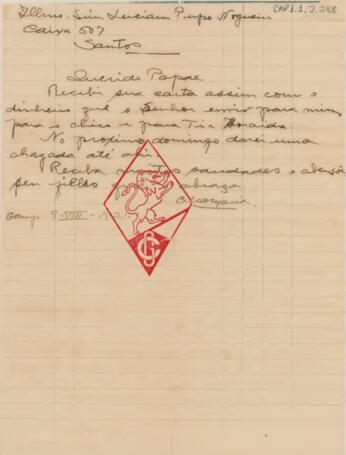 CAP J.1.2.288
Illmo. Snr Luciam Pupo Nogueira
Caixa 507
Santos
Querido Papae
Recibi sua carta assim com o
dinheiro que o Senhor enviou para mim
para o chico e para Tia
No proximo domingo darei uma
chegada até ahi.
Receba muitas saudades e abenção
seu filho que abraça
Camp. 9-VIII-
CG